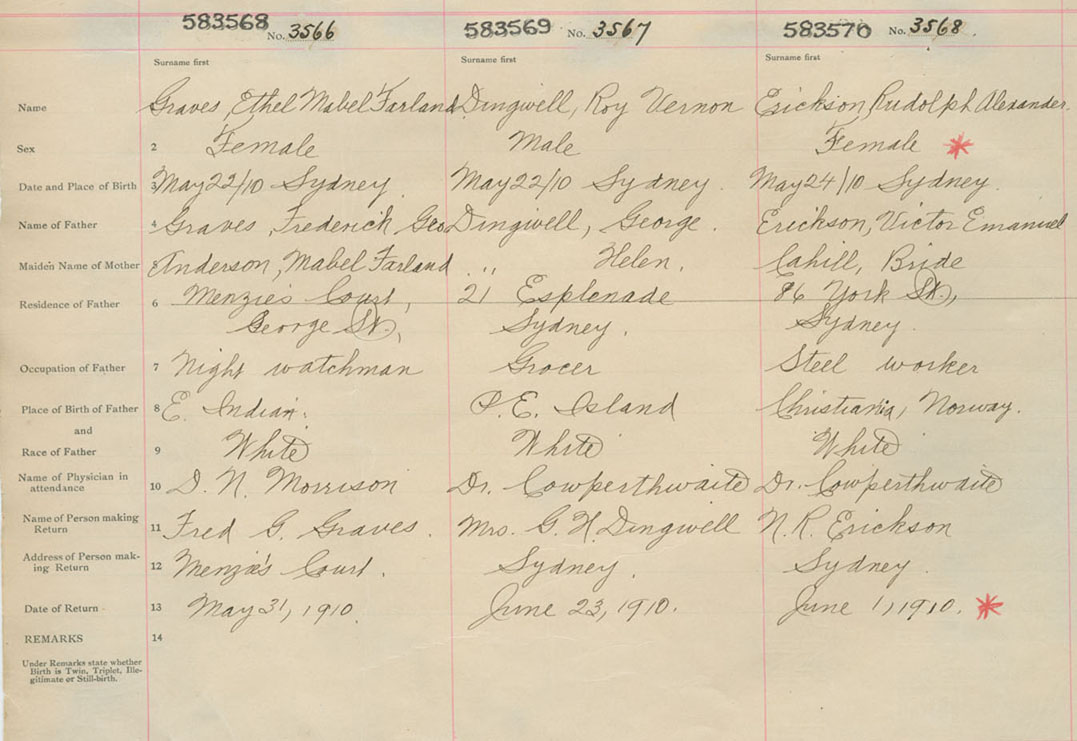 583568 No. 3566 583569 No. 3567 583570 No. 3568
Surname first Surname first Surname first
Name Graves, Ethel Mabel Farland Dingwell, Roy Vernon Erickson, Rudolph Alexander
Sex 2 Female Male Female *
Date and Place of Birth 3 May 22/10 Sydney May 22/10 Sydney. May 24/10 Sydney.
Name of Father 4 Graves, Frederick Geo Dingwell, George. Erickson, Victor Emanuel
Maiden Name of Mother 5 Anderson, Mabel Farland " Helen. Cahill, Bride
Residence of Father 6 Menzie's Court, 21 Esplenade 86 York St.,
George St., Sydney. Sydney.
Occupation of Father 7 Night watchman Grocer Steel worker
Place of Birth of Father 8 E. Indian. P.E. Island Christiania, Norway.
and
Race of Father 9 White White White
Name of Physician in
attendance 10 D. N. Morrison Dr. Cowperthwaite Dr. Cowperthwaite
Name of Person making
Return 11 Fred G. Graves. Mrs. G. H. Dingwell N. R. Erickson
Address of Person mak-
ing Return 12 Menzie's Court. Sydney. Sydney.
Date of Return 13 May 31, 1910. June 23, 1910. June 1, 1910. *
REMARKS 14
Under Remarks state whether
Birth is Twin, Triplet, Ille-
gitimate or Still-birth.